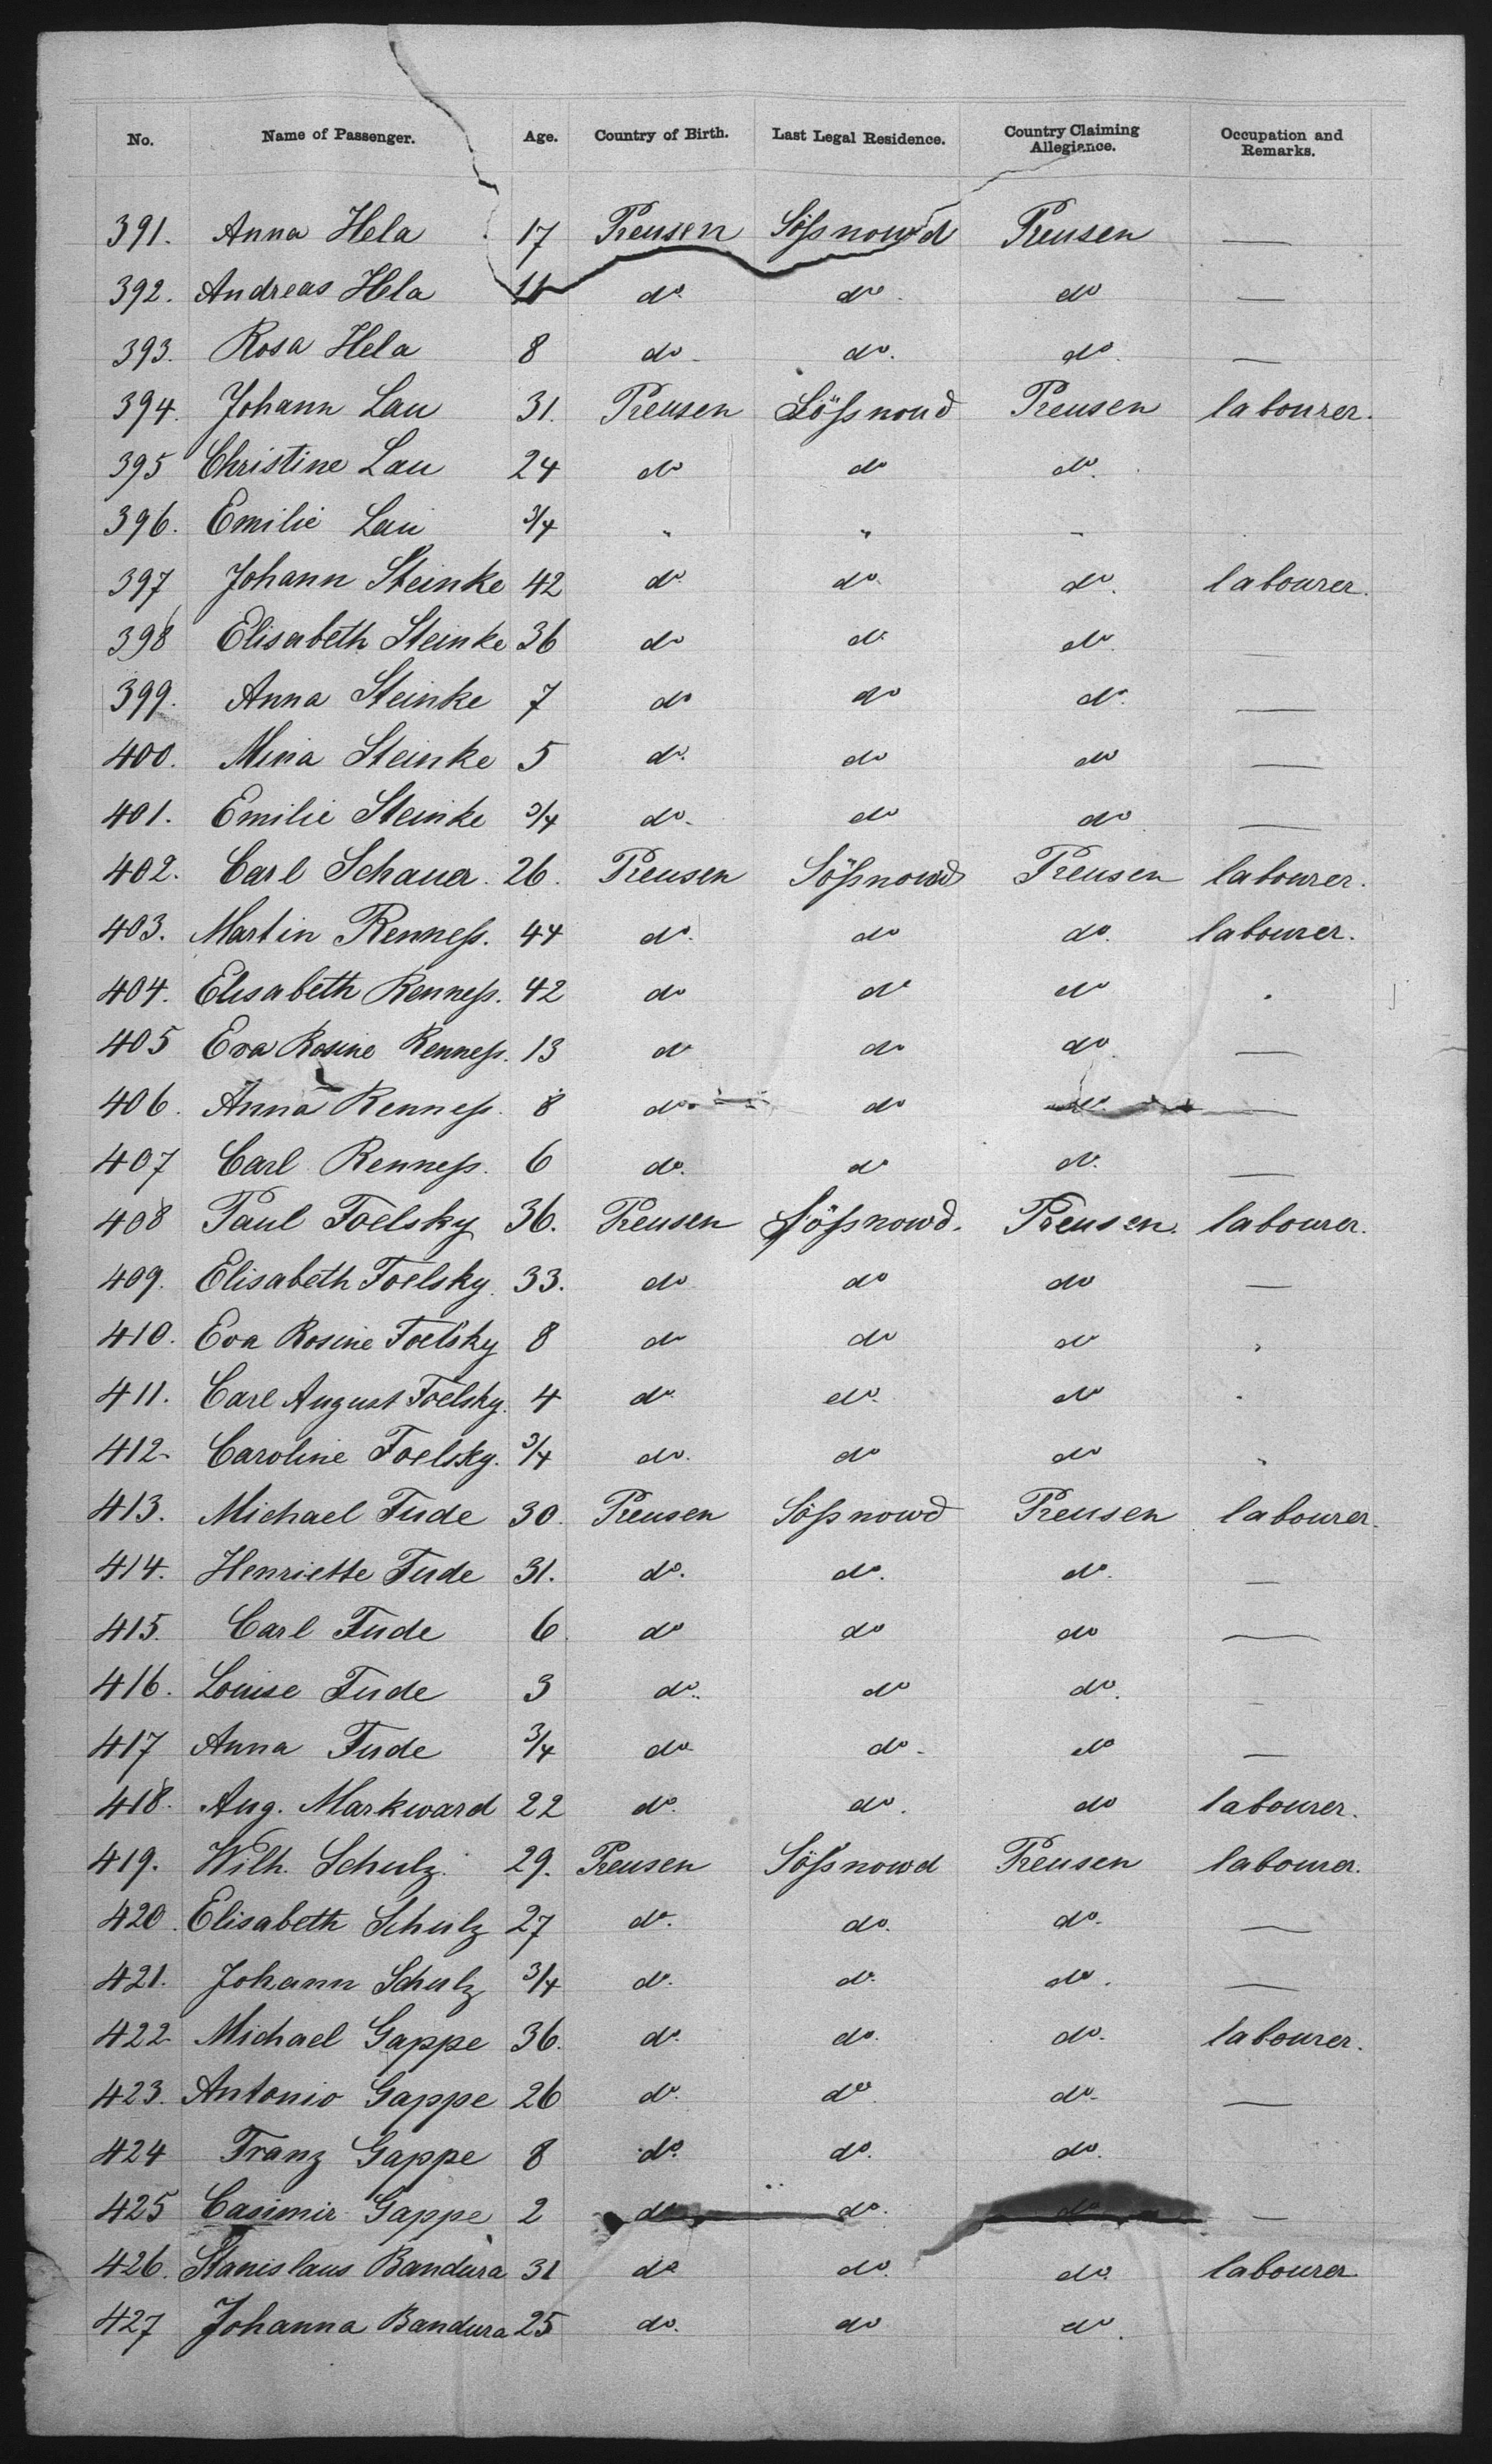 No. Name of Passenger. Age. Country of Birth. Last Legal Residence. Country Claiming Allegiance. Occupation and Remarks.
391. Anna Hela 17 Preusen Sößnowd Preusen —
392. Andreas Hela 11 do do do —
393. Rosa Hela 8 do do. do. —
394. Johann Lau 31. Preusen Sößnowd Preusen labourer.
395 Christine Lau 24 do do do.
396. Emilie Lau 3/4 " " "
397 Johann Steinke 42 do do. do. labourer.
398 Elisabeth Steinke 36 do do do. —
399. Anna Steinke 7 do do do. —
400. Mina Steinke 5 do. do do —
401. Emilie Steinke 3/4 do. do do —
402. Carl Schauer. 26. Preusen Sößnowd Preusen labourer.
403. Martin Renneß. 44 do. do do. labourer.
404. Elisabeth Renneß. 42 do do do
405 Eva Rosine Renneß. 13 do do do. —
406. Anna Renneß. 8 do. do do. —
407 Carl Renneß. 6 do. do do. —
408 Paul Foelsky 36. Preusen Sößnowd. Preusen. labourer.
409. Elisabeth Foelsky. 33. do do do —
410. Eva Rosine Foelsky 8 do do do
411. Carl August Foelsky. 4 do do. do
412. Caroline Foelsky. 3/4 do. do do
413. Michael Fude 30. Preusen Sößnowd Preusen labourer.
414. Henriette Fude 31. do. do. do. —
415. Carl Fude 6 do do do —
416. Louise Fude 3 do. do do. —
417 Anna Fude 3/4 do do. do —
418. Aug. Markward 22 do. do. do labourer.
419. Wilh. Schulz. 29. Preusen Sößnowd Preusen labourer.
420. Elisabeth Schulz 27 do. do. do. —
421. Johann Schulz 3/4 do. do. do. —
422 Michael Gappe 36. do. do. do. labourer.
423. Antonio Gappe 26 do. do. do. —
424 Franz Gappe 8 do. do. do.
425 Casimir Gappe 2 do do. do —
426. Stanislaus Bandura 31 do do. do. labourer.
427 Johanna Bandura 25 do. do do.